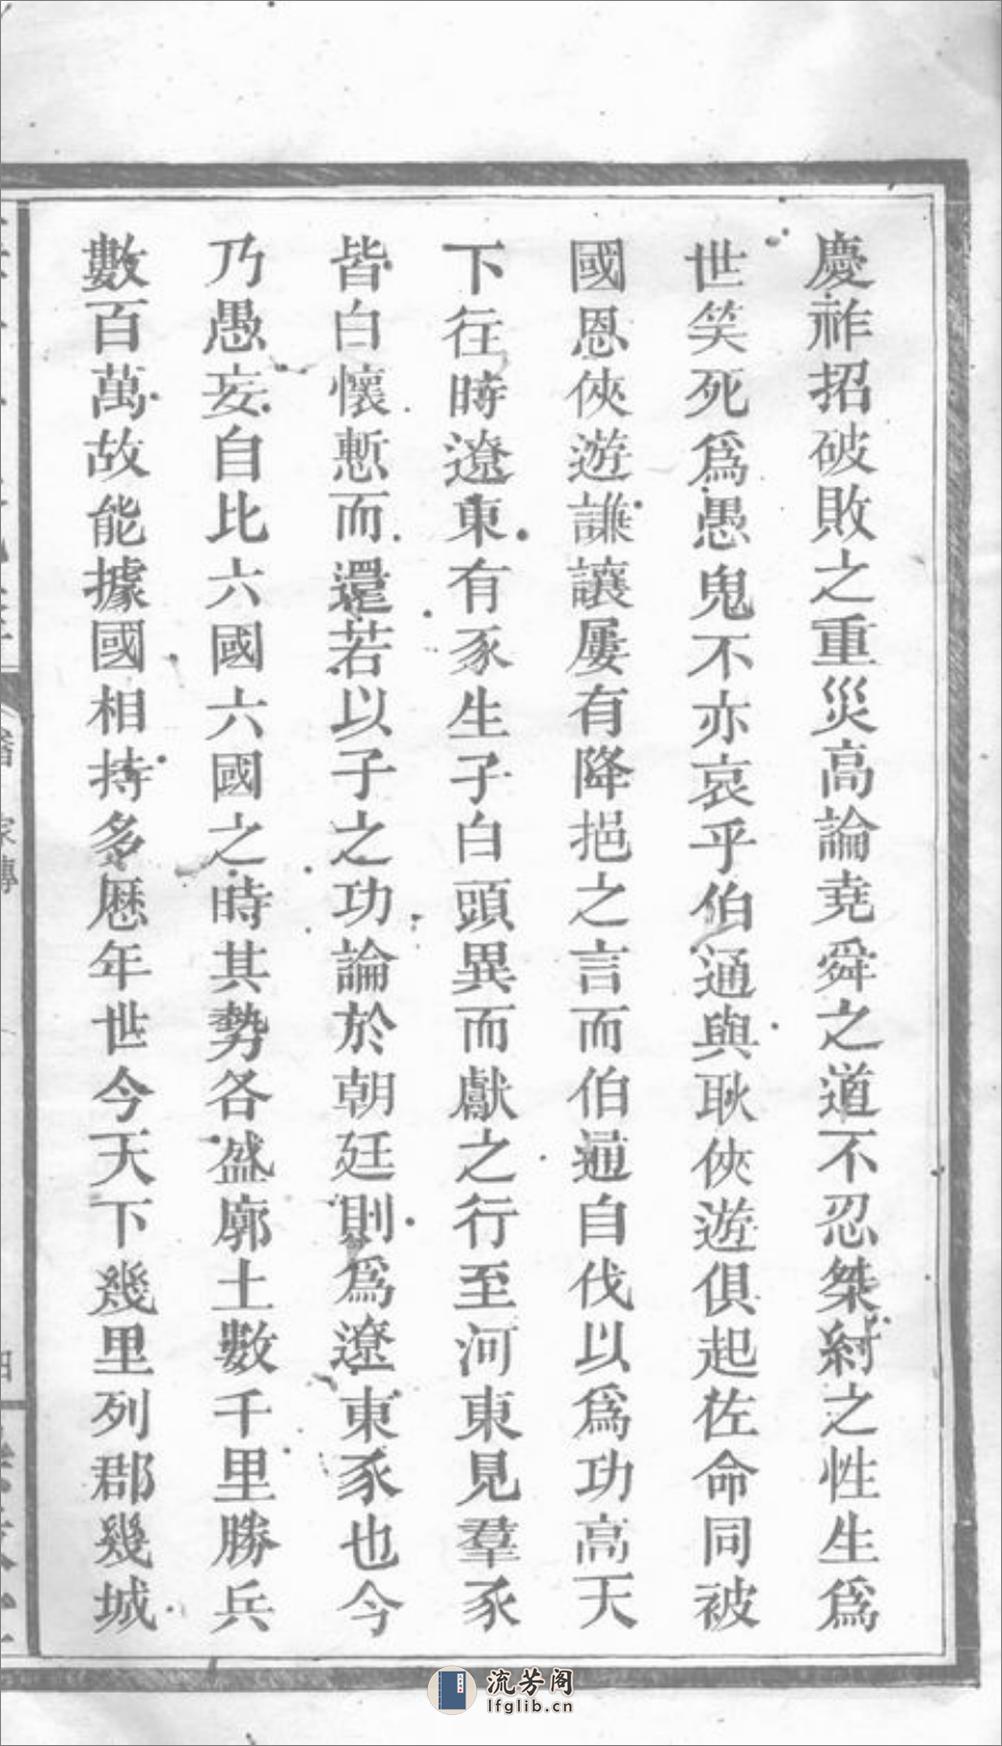 慶祚招破敗之重災高論堯舜之道不忍桀紂之性生爲
世笑死爲愚鬼不亦哀乎伯通與耿俠遊俱起佐命同被
國恩俠遊謙讓屢有降挹之言而伯通自伐以爲功高天
下往時遼東有豕生子白頭異而獻之行至河東見羣豕
皆白懷慙而還若以子之功論於朝廷則爲遼東豕也今
乃愚妄自比六國六國之時其勢各盛廓土數千里勝兵
數百萬故能據國相持多歷年世今天下幾里列郡幾城
家傳
四
流芳阁
lfglib.cn